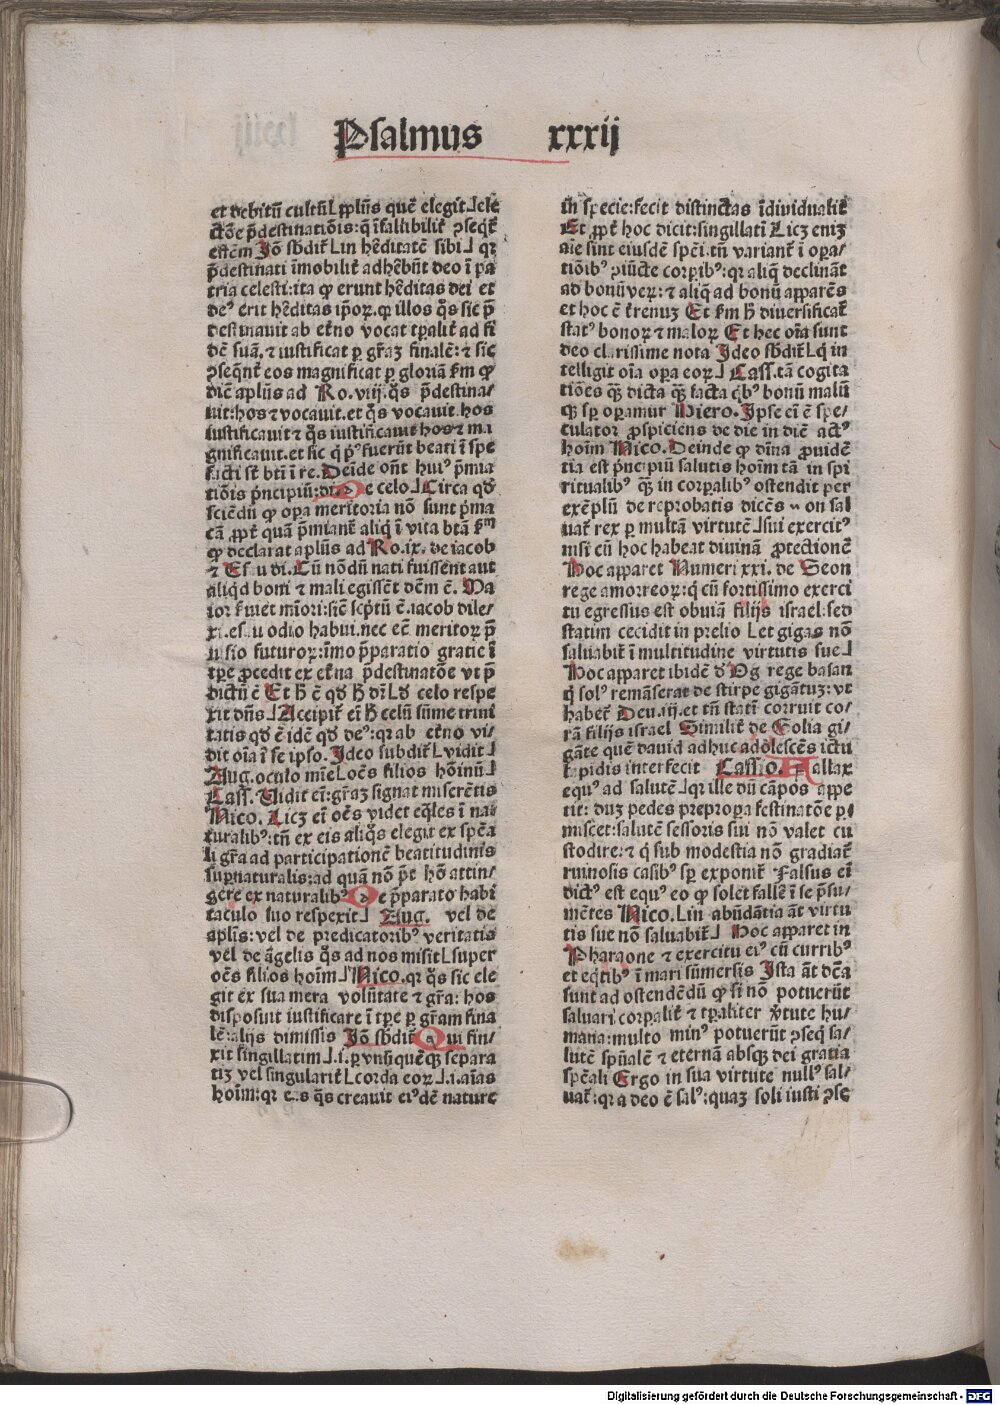 Psalmus xxxij
et debitū cultū⌋ ꝓplīs quē elegit⌋ele
ctōe p̄destinatiōis:q̄ īfallibilit̄ ꝯseqt̄
estēm Jō sb̄dit̄⌊in hēditatē sibi⌋ qꝛ
p̄destinati īmobilit̄ adhēbūt deo ī pa
tria celesti:ita ꝙ erunt hēditas dei et
deꝰ erit hēditas ip̄oꝝ.ꝙ illos q̄s sic p̄
destinauit ab etno vocat tp̄alit̄ ad fi
dē suā.⁊ iustificat ꝑ gr̄aꝫ finalē:⁊ sic
ꝯseqn̄t̄ eos magnificat ꝑ gloriā fm ꝙ
dic̄ aplūs ad Ro.viij.q̄s p̄destina/
uit:hos ⁊ vocauit.et q̄s vocauit hos
iustificauit ⁊ q̄s iustificauit hos ⁊ ma
gnificauit.et sic q̄ pꝰ fuerūt beati ī spe
facti st̄ bt̄i ī re.Deīde on̄t huiꝰ p̄mia
tiōis p̄ncipiū:di. De celo⌋Circa qd̄
sciēdū ꝙ oꝑa meritoria nō sunt p̄ma
cā ꝓpt̄ quā p̄miant̄ aliq̄ ī vita bt̄a fm
ꝙ declarat aplūs ad Ro.ix. de iacob
⁊ Esau di.Cū nōdū nati fuissent aut
aliqd boni ⁊ mali egissēt dēm ē. Ma
ior fuiet mīori:sic̄ scptū ē.iacob dile/
xi.esau odio habui.nec ec̄ meritoꝝ p̄
uisio futuroꝝ:īmo p̄paratio gratie ī
tꝑe ꝓcedit ex etna p̄destinatōe vt p̄
dictū ē Et h̄ ē qd̄ h̄ dī⌊De celo respe
xit dn̄s⌋Accipit̄ ei h̄ celū sūme trini
tatis qd̄ ē idē qd̄ deꝰ:qꝛ ab etno vi/
dit oīa ī se ipso.Jdeo subdit̄⌊vidit⌋
Aug.oculo mīe⌊oēs filios hoīnū⌋
Cass. Vidit eī:gr̄aꝫ signat miserētis
Nico. Licꝫ eī oēs videt eq̄les ī na/
turalibꝰ:tn̄ ex eis aliq̄s elegit ex spēa
li gr̄a ad participationē beatitudinis
suꝑnaturalis:ad quā nō pt̄ hō attin/
gere ex naturalibꝰ De p̄parato habi
taculo suo respexit⌋ Aug. vel de
aplīs:vel de predicatoribꝰ veritatis
vel de āgelis q̄s ad nos misit⌊super
oēs filios hoīm⌋Nico.qꝛ q̄s sic ele
git ex sua mera volūtate ⁊ gr̄a: hos
disposuit iustificare ī tꝑe ꝑ gr̄am fina
lē:alijs dimissis Jō sb̄dit̄ Qui fin/
xit singillatim⌋.i.ꝑ vnūquēqꝫ separa
tiꝫ vel singularit̄⌊corda eoꝝ⌋.i.aīas
hoīm:qꝛ eas q̄s creauit eiꝰdē nature
in specie:fecit distinctas īdiuidualit̄
Et ꝓpt̄ hoc dicit:singillatī Licꝫ eniꝫ
aīe sint eiusdē spēi.tn̄ variant̄ ī oꝑa/
tiōibꝰ ꝯiūcte corꝑibꝰ:qꝛ aliq̄ declināt
ad bonū veꝝ:⁊ aliq̄ ad bonū apparēs
et hoc ē t̄renuꝫ Et fm h̄ diuersificat̄
statꝰ bonoꝝ ⁊ maloꝝ Et hec oīa sunt
deo clarissime nota Jdeo sb̄dit̄⌊q̄ in
telligit oīa oꝑa eoꝝ⌋ Cass.tā cogita
tiōes qꝫ dicta qꝫ facta qbꝰ bonū malū
qꝫ sꝑ oꝑamur Hiero. Jpse eī ē spe/
culator ꝓspiciens de die in diē actꝰ
hoīm Nico. Deinde ꝙ dīna ꝓuidē
tia est p̄ncipiū salutis hoīm tā in spi
ritualibꝰ qꝫ in corꝑalibꝰ ostendit per
exēplū de reprobatis dicēs Non sal
uat̄ rex ꝑ multā virtutē⌋sui exercitꝰ
nisi cū hoc habeat diuinā ꝓtectionē
Hoc apparet Numeri xxi. de Seon
rege amorreoꝝ:q̄ cū fortissimo exerci
tu egressus est obuiā filijs israel:sed
statim cecidit in prelio⌊et gigas nō
saluabit̄ ī multitudine virtutis sue⌋
Hoc apparet ibidē d̄ Og rege basan
q̄ solꝰ remāserat de stirpe gigātuꝫ:vt
habet̄ Deu.iij.et tn̄ statī corruit co/
rā filijs israel Similit̄ de Golia gi/
gāte quē dauid adhuc adolescēs ictu
lapidis interfecit Cassio. Fallax
equꝰ ad salutē⌋qꝛ ille dū cāpos appe
tit: duꝫ pedes preproꝑa festinatōe ꝑ/
miscet:salutē sessoris sui nō valet cu
stodire:⁊ q̄ sub modestia nō gradiat̄
ruinosis casibꝰ sꝑ exponit̄ Falsus eī
dictꝰ est equꝰ eo ꝙ solet fallē ī se p̄su/
mētes Nico.⌊in abūdātia āt virtu
tis sue nō saluabit̄⌋ Hoc apparet in
Pharaone ⁊ exercitu eiꝰ cū curribꝰ
et eqtibꝰ ī mari sūmersis Jsta āt dc̄a
sunt ad ostendēdū ꝙ si nō potuerūt
saluari corꝑalit̄ ⁊ tꝑaliter v̄tute hu/
mana:multo minꝰ potuerūt ꝯseq̄ sa/
lutē spūalē ⁊ eternā absqꝫ dei gratia
spēali Ergo in sua virtute nullꝰ sal/
uat̄:qꝛ a deo ē salꝰ:quaꝫ soli iusti ꝯse
Digitalisierung gefördert durch die Deutsche Forschungsgemeinschaft - DFG